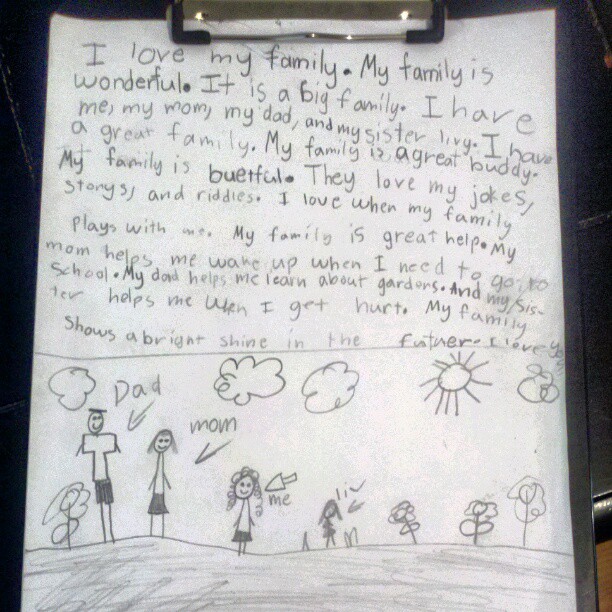 I love my family. My family is
wonderful. It is a big family. I have
me, my mom, my dad, and my sister livy. I have
a great family. My family is a great buddy.
My family is buetful. They love my jokes,
storys, and riddles. I love when my family
plays with me. My family is great help. My
mom helps me wake up when I need to go to
School. My dad helps me learn about gardens. And my sis-
ter helps me when I get hurt. My family
shows a bright shine in the futner. I love you
Dad
mom
me
liv